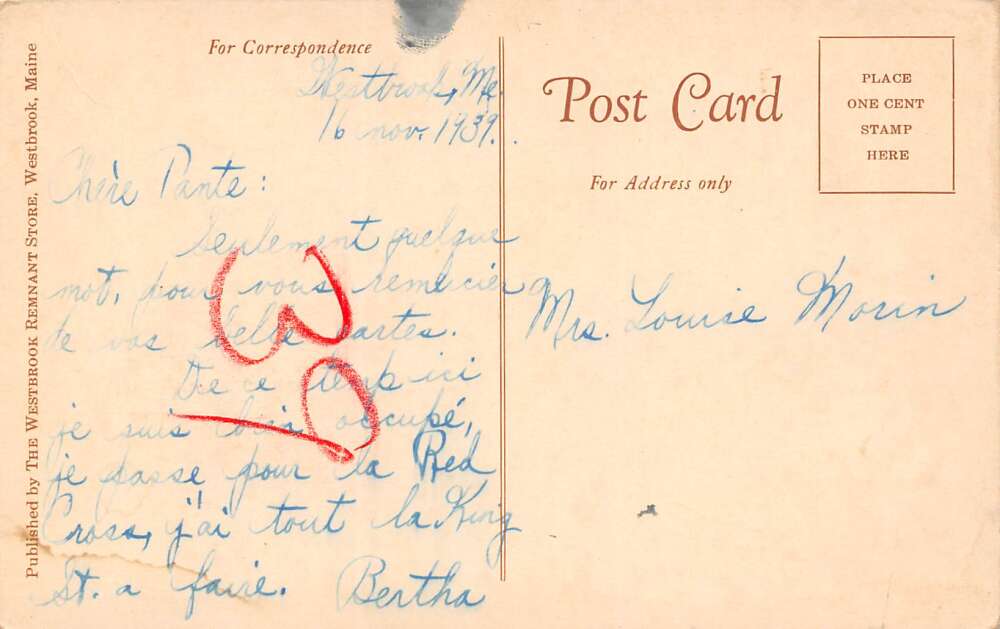 For Correspondence
Westbrook, Me.
16 nov. 1939.
Chère Tante :
Seulement quelque
mot, pour vous remercier
de vos belle cartes.
De ce temp ici
je suis bien occupé,
je passe pour la Red
Cross, j'ai tout la King
St. a faire. Bertha
Post Card
For Address only
PLACE
ONE CENT
STAMP
HERE
Mrs. Louise Morin
Published by THE WESTBROOK REMNANT STORE, Westbrook, Maine